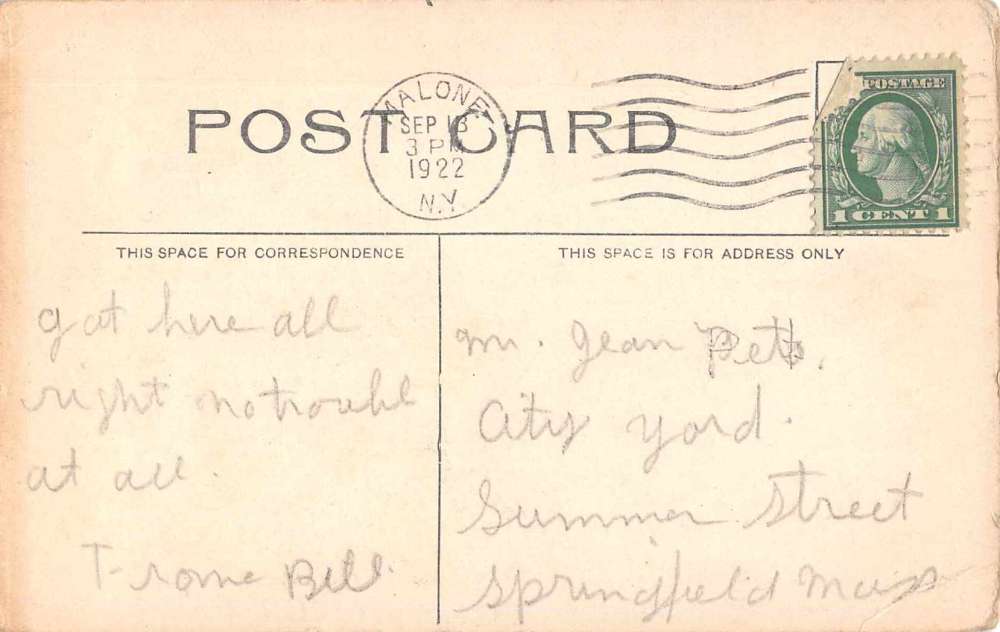 POST CARD
MALONE
SEP 13
3 PM
1922
N.Y.
POSTAGE
1 CENT 1
THIS SPACE FOR CORRESPONDENCE
got here all
right no trouble
at all.
Bill
THIS SPACE IS FOR ADDRESS ONLY
Mr. Jean
City Yard.
Summer Street
Springfield Mass